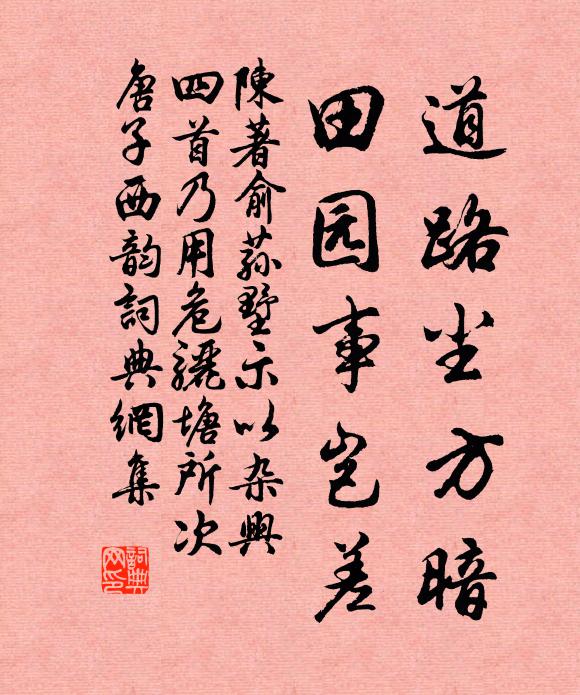 道路尘方暗
田园事岂差
陳著俞蓀墅示以杂興
四首乃用危驪塘所次
唐子西韵詞典網集
詞典
网印